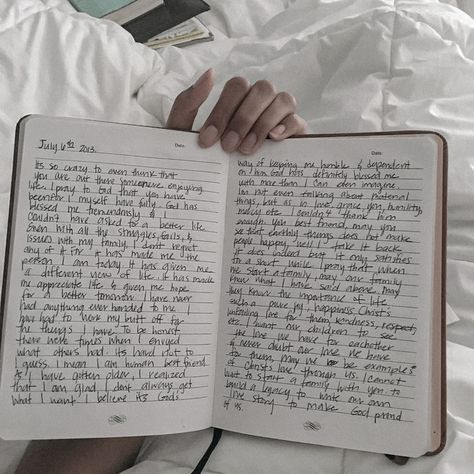 July 6th 2013.
Date:
Its so crazy to think that
you are out there someplace enjoying
life. I pray to God that you have
been for I myself have fully. God has
blessed me tremendously & I
couldn't have asked for a better life
Even with all the struggles, trials, &
issues with my family, I don't regret
any of it for it has made me the
person I am today. It has given me
a different view of life. It has made
me appreciate life & given me hope
for a better tomorrow. I have never
had anything ever handed to me. I
have had to work my butt off for
the things I have. To be honest
there were times when I envyed
what others had. Its hard not to
I guess. I mean I am human best friend.
As I have gotten older, I realized
that I am glad I dont always get
what I want. I believe its God's
Date:
way of keeping me humble & dependent
on him. God has definitely blessed me
with more than I can even imagine.
Im not even talking about material
things, but as in love, grace, you, humility,
mercy etc. I couldn't thank him
enough. You best friend, may you
see that earthly things does not make
people happy, well I take it back
it does indeed but it only satisfies
for a short while. I pray that when
we start a family, may our family
know what I have said above, may
they know the importance of life
such a pure joy, happiness, Christ's
unfailing love for them, kindness, respect,
etc. I want our children to see
the love we have for eachother
& never doubt our love we have
for them, may we be examples
of Christ's love through us. I cannot
wait to start a family with you. to
build a legacy to write our own
love story to make God proud
of us.